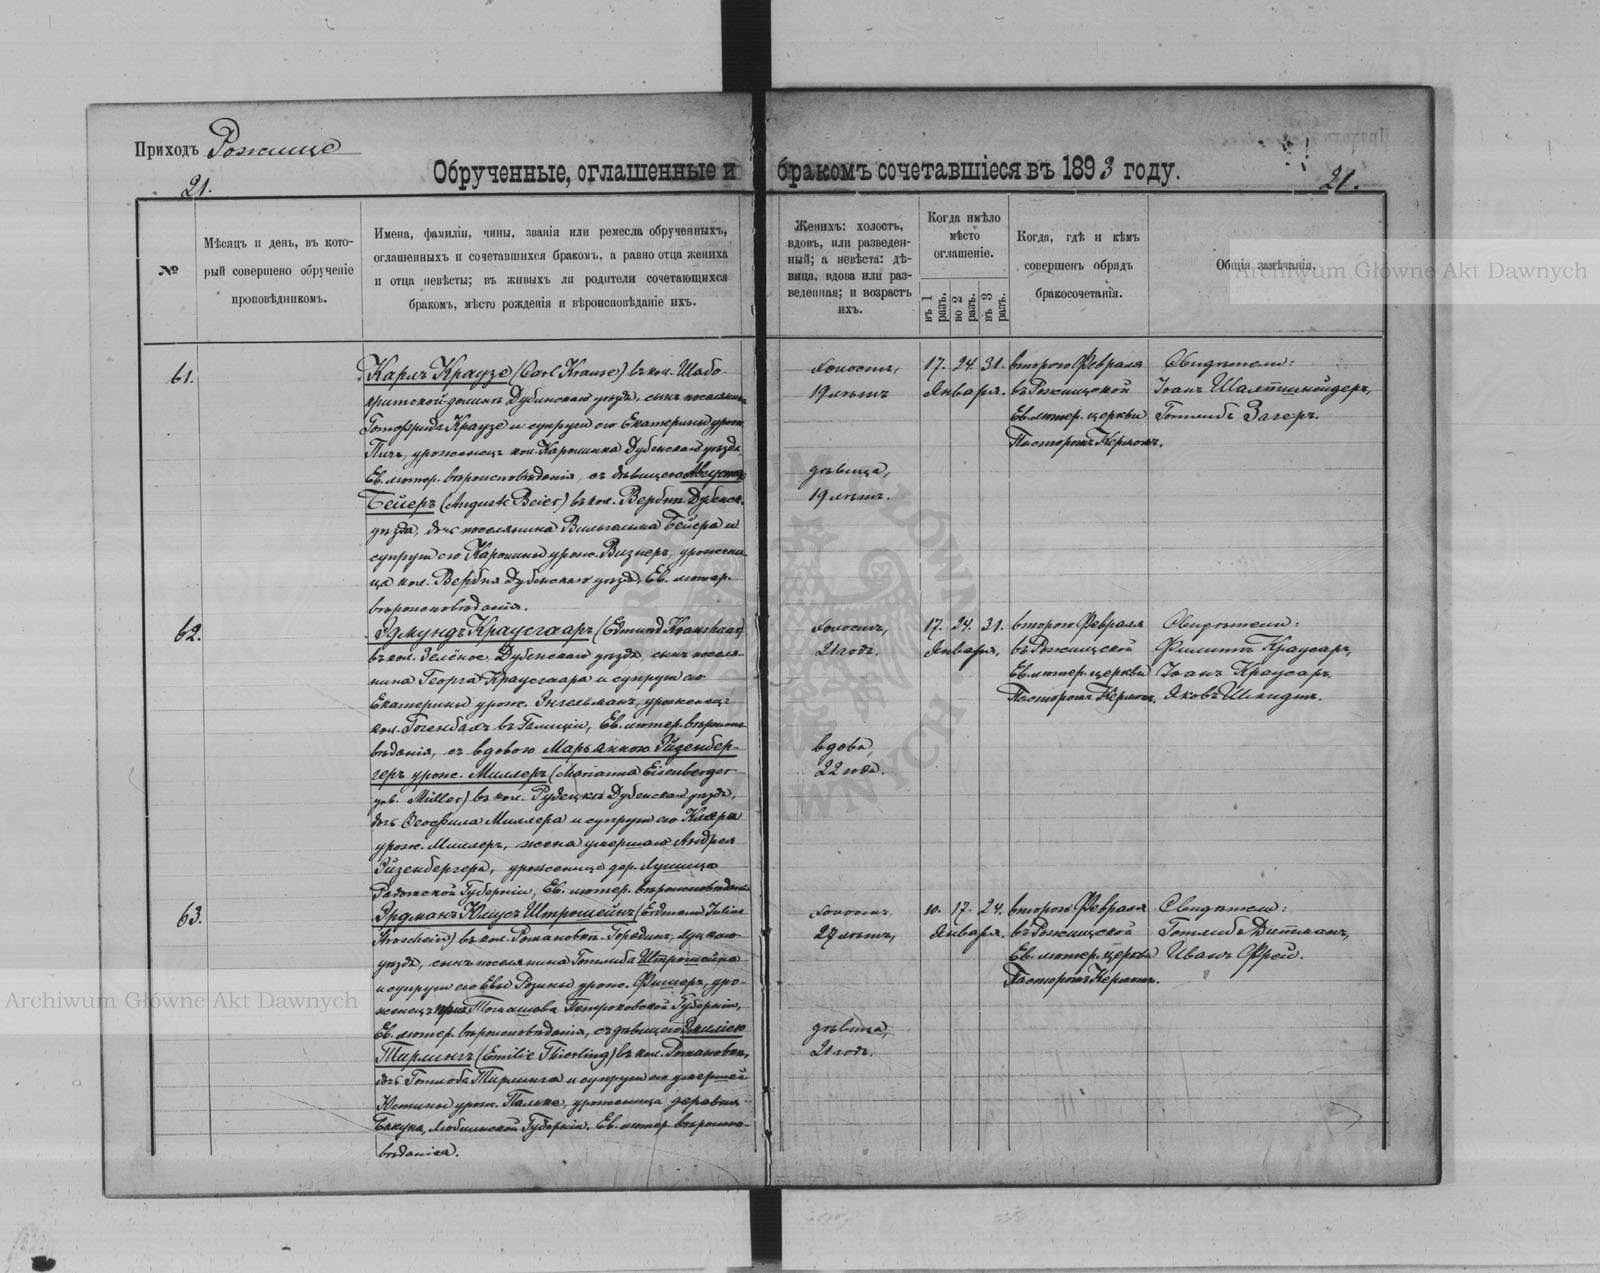 Приходъ Рожище
21.
Обрученные, оглашенные и бракомъ сочетавшіеся въ 1893 году.
21.
№
Мѣсяцъ и день, въ кото-
рый совершено обрученіе
проповѣдникомъ.
Имена, фамиліи, чины, званія или ремесла обрученныхъ,
оглашенныхъ и сочетавшихся бракомъ, а равно отца жениха
и отца невѣсты; въ живыхъ ли родители сочетающихся
бракомъ, мѣсто рожденія и вѣроисповѣданіе ихъ.
Женихъ: холостъ,
вдовъ, или разведен-
ный; а невѣста: дѣ-
вица, вдова или раз-
веденная; и возрастъ
ихъ.
Когда имѣло
мѣсто
оглашеніе.
въ 1 разъ.
во 2 разъ.
въ 3 разъ.
Когда, гдѣ и кѣмъ
совершенъ обрядъ
бракосочетанія.
Общія замѣчанія.
61.
Карлъ Краузе (Carl Krause) въ кол. Шабо-
критской-долинѣ Дубенскаго уѣзда, сынъ поселянина
Готфрида Краузе и супруги его Екатерины урож.
Пичъ, уроженецъ кол. Каролинка Дубенскаго уѣзда,
Ев. лютер. вѣроисповѣданія, съ дѣвицею Августою
Бейеръ (Auguste Beier) въ кол. Верба Дубенск.
уѣзда, дочь поселянина Вильгельма Бейера и
супруги его Каролины урож. Визнеръ, урожени-
ца кол. Верба Дубенскаго уѣзда, Ев. лютер.
вѣроисповѣданія.
холостъ,
19 лѣтъ
дѣвица,
19 лѣтъ.
17. 24. 31.
Января.
второго Февраля
въ Рожищской
Ев. лютер. церкви
Пасторомъ Кермомъ.
Свидѣтели:
Іоанъ Шалтшнейдеръ,
Готлибъ Загеръ.
62.
Эдмундъ Краусгааръ (Edmund Kraushaar)
въ кол. Зелёное, Дубенскаго уѣзда, сынъ поселя-
нина Георга Краусгаара и супруги его
Екатерины урож. Энгельманъ, уроженецъ
кол. Гогенбахъ въ Галиціи, Ев. лютер. вѣроиспо-
вѣданія, съ вдовою Марьянною Эйзенбер-
геръ урож. Миллеръ (Marianna Eisenberger
geb. Müller) въ кол. Рудецкѣ Дубенскаго уѣзда,
дочь Ѳеофила Миллера и супруги его Клары
урож. Миллеръ, жена умершаго Андрея
Эйзенбергера, уроженица дер.
Радомской Губерніи, Ев. лютер. вѣроисповѣданія
холостъ,
21 годъ.
вдова,
22 года.
17. 24. 31.
Января.
второго Февраля
въ Рожищской
Ев. лютер. церкви
Пасторомъ Кермомъ.
Свидѣтели:
Филиппъ Краусаръ,
Іоанъ Краусаръ.
Яковъ Шмидтъ.
63.
Эрдманъ Юлiусъ Штрошейнъ (Erdmann Julius
Stroschein) въ кол. Романовкѣ-Городинѣ, Луцкаго
уѣзда, сынъ поселянина Готлиба Штрошейна
и супруги его Евы Розины урож. Фишеръ, уро-
женецъ Томашова Петроковской Губерніи,
Ев. лютер. вѣроисповѣданія, съ дѣвицею Эмиліею
Тирлингъ (Emilie Thierling) въ кол. Романовкѣ,
дочь Готлоба Тирлинга и супруги его умершей
Юстины урож. Пальке, уроженица деревни
Бакуна, Люблинской Губерніи. Ев. лютер. вѣроиспо-
вѣданія.
холостъ,
27 лѣтъ,
дѣвица,
21 годъ.
10. 17. 24.
Января.
второго Февраля
въ Рожищской
Ев. лютер. церкви
Пасторомъ Кермомъ.
Свидѣтели:
Готлибъ Дитманъ,
Иванъ Фрей.
Archiwum Główne Akt Dawnych
Archiwum Główne Akt Dawnych